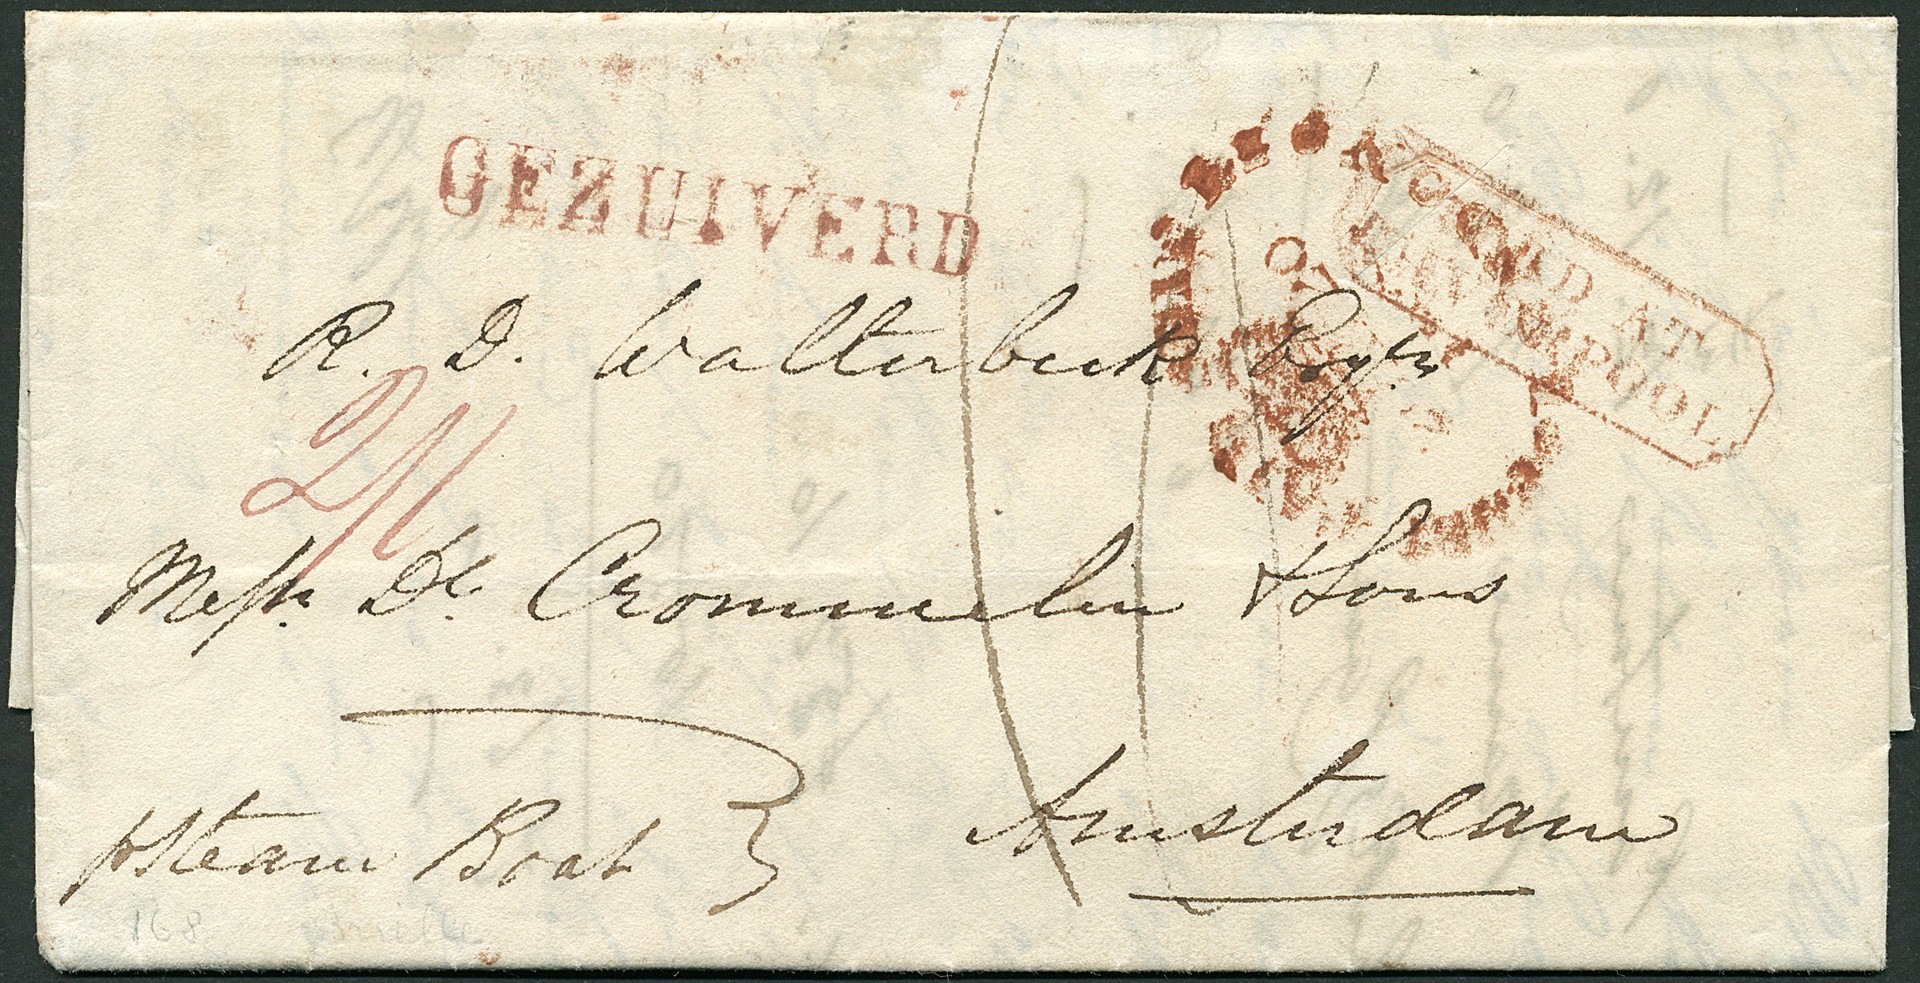 GEZUIVERD
PAID AT
LIVERPOOL
R. D. Walterbeek Esqr
2/1
Messrs Dl. Crommelin & Sons
Amsterdam
p Steam Boat
168
Brielle